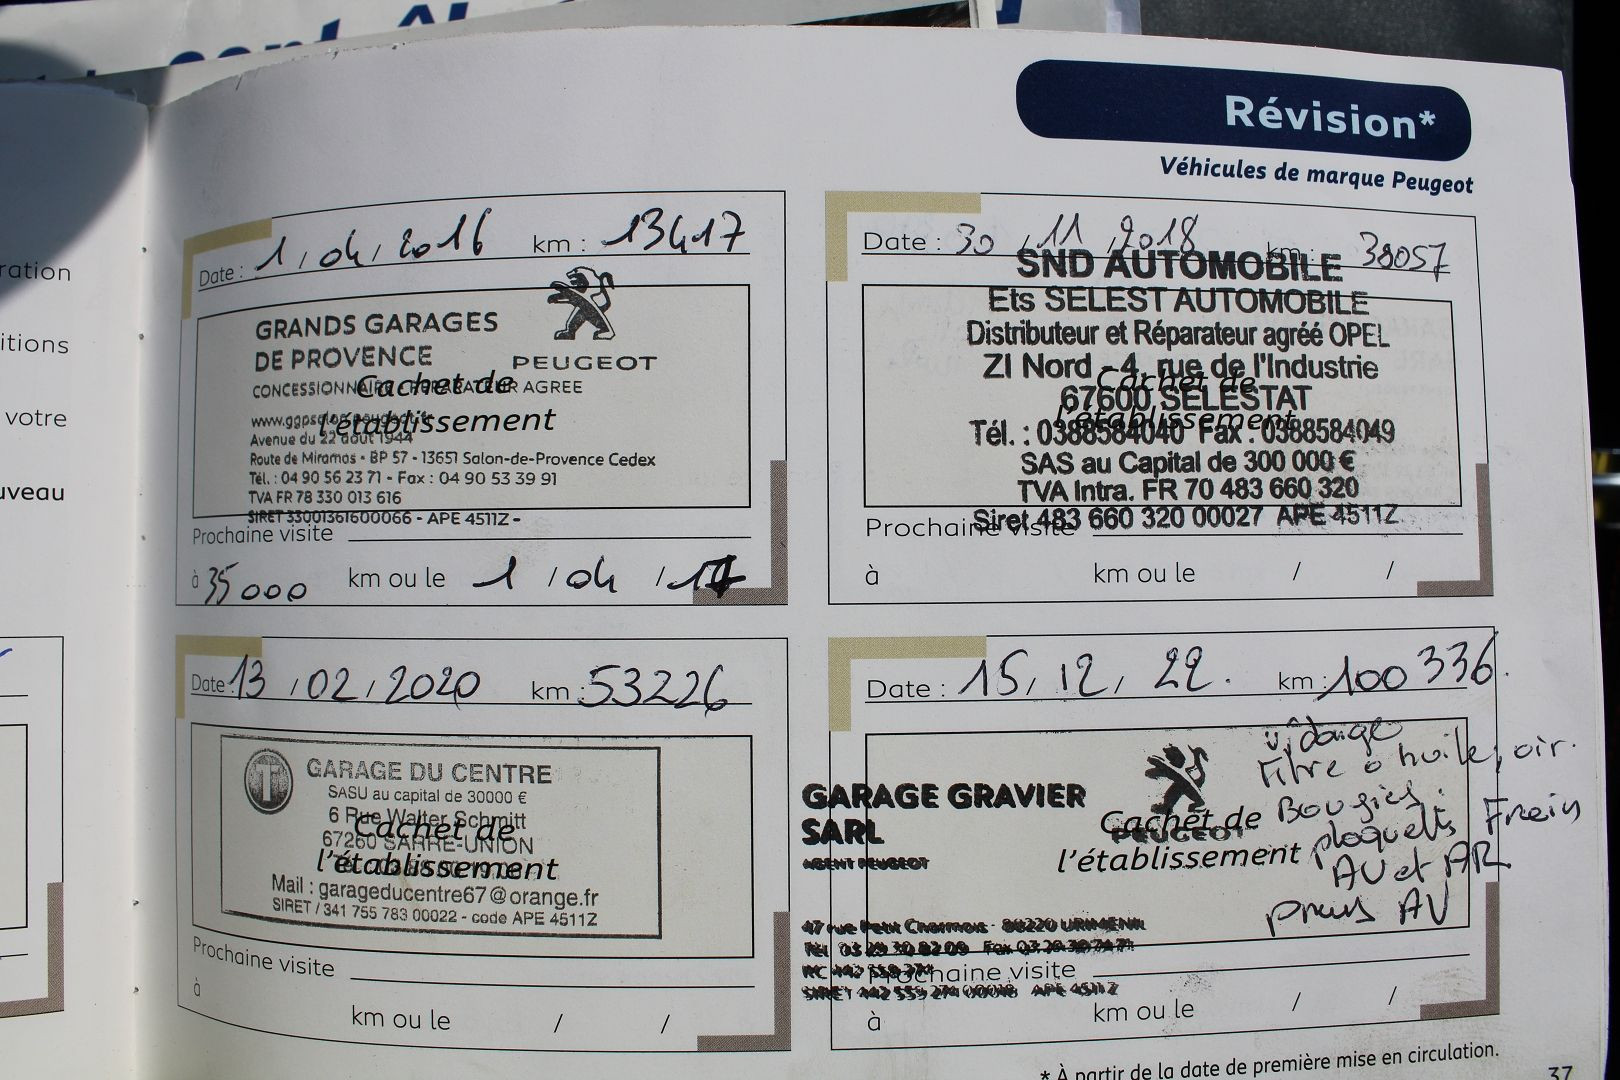 Révision*
Véhicules de marque Peugeot
ration
itions
votre
uveau
Date : 1 / 04 / 2016 km : 13417
GRANDS GARAGES
DE PROVENCE
PEUGEOT
CONCESSIONNAIRE - REPARATEUR AGREE
Cachet de
l'établissement
www.ggpsalon.peugeot.fr
Avenue du 22 août 1944
Route de Miramas - BP 57 - 13651 Salon-de-Provence Cedex
Tél. : 04 90 56 23 71 - Fax : 04 90 53 39 91
TVA FR 78 330 013 616
SIRET 33001361600066 - APE 4511Z -
Prochaine visite
à 35000 km ou le 1 / 04 / 17
Date : 30 / 11 / 2018 km : 38057
SND AUTOMOBILE
Ets SELEST AUTOMOBILE
Distributeur et Réparateur agréé OPEL
ZI Nord - 4, rue de l'Industrie
Cachet de
67600 SELESTAT
l'établissement
Tél. : 0388584040 Fax : 0388584049
SAS au Capital de 300 000 €
TVA Intra. FR 70 483 660 320
Siret 483 660 320 00027 APE 4511Z
Prochaine visite
à km ou le / /
Date : 13 / 02 / 2020 km : 53226
GARAGE DU CENTRE
SASU au capital de 30000 €
6 Rue Walter Schmitt
Cachet de
67260 SARRE-UNION
l'établissement
Mail : garageducentre67@orange.fr
SIRET / 341 755 783 00022 - code APE 4511Z
Prochaine visite
à km ou le / /
Date : 15 / 12 / 22. km : 100 336.
GARAGE GRAVIER
SARL
AGENT PEUGEOT
PEUGEOT
Cachet de
l'établissement
Vidange
Filtre à huile, air.
Bougies
plaquettes Frein
AV et AR
pneus AV
47 rue Petit Charmois - 88220 URIMENIL
Tél 03 29 30 82 09 Fax 03 29 30 74 71
Prochaine visite
à km ou le / /
* À partir de la date de première mise en circulation.
37